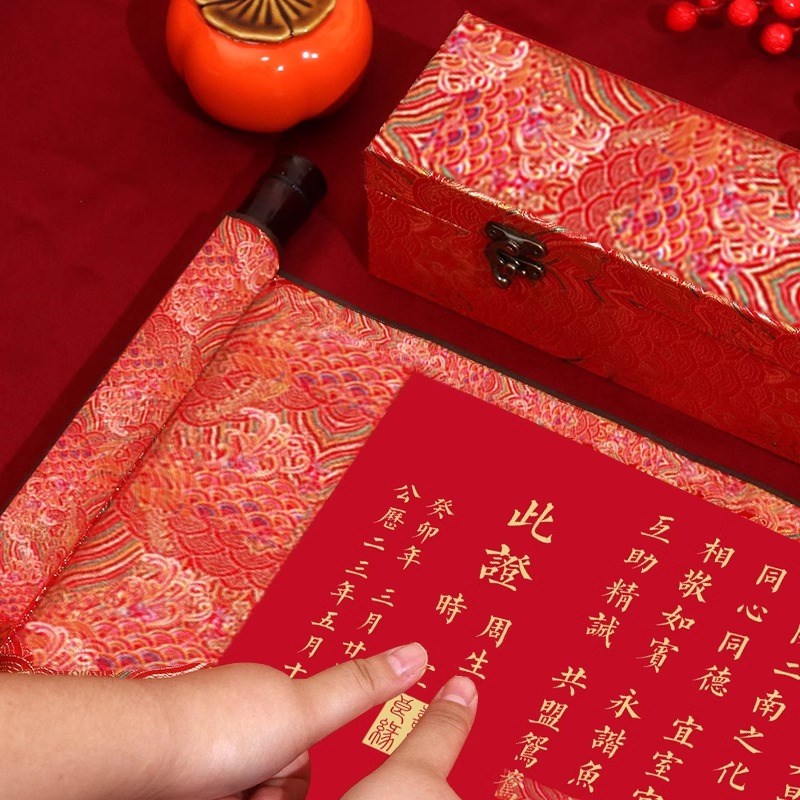 二南之化
同心同德 宜室
相敬如賓 永諧魚
互助精誠 共盟鴛鴦
此證
周生
時
癸卯年 三月廿
公曆二三年五月十
良緣